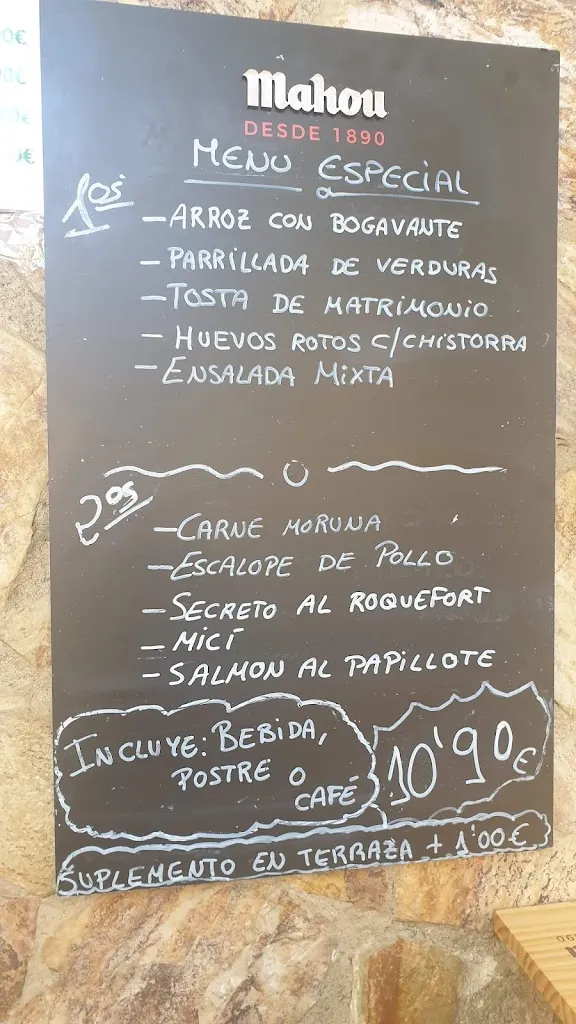 Mahou
DESDE 1890
MENU ESPECIAL
1os
- ARROZ CON BOGAVANTE
- PARRILLADA DE VERDURAS
- TOSTA DE MATRIMONIO
- HUEVOS ROTOS C/CHISTORRA
- ENSALADA MIXTA
2os
- CARNE MORUNA
- ESCALOPE DE POLLO
- SECRETO AL ROQUEFORT
- MICI
- SALMON AL PAPILLOTE
INCLUYE: BEBIDA,
POSTRE O
CAFÉ
10'90€
SUPLEMENTO EN TERRAZA + 1'00€